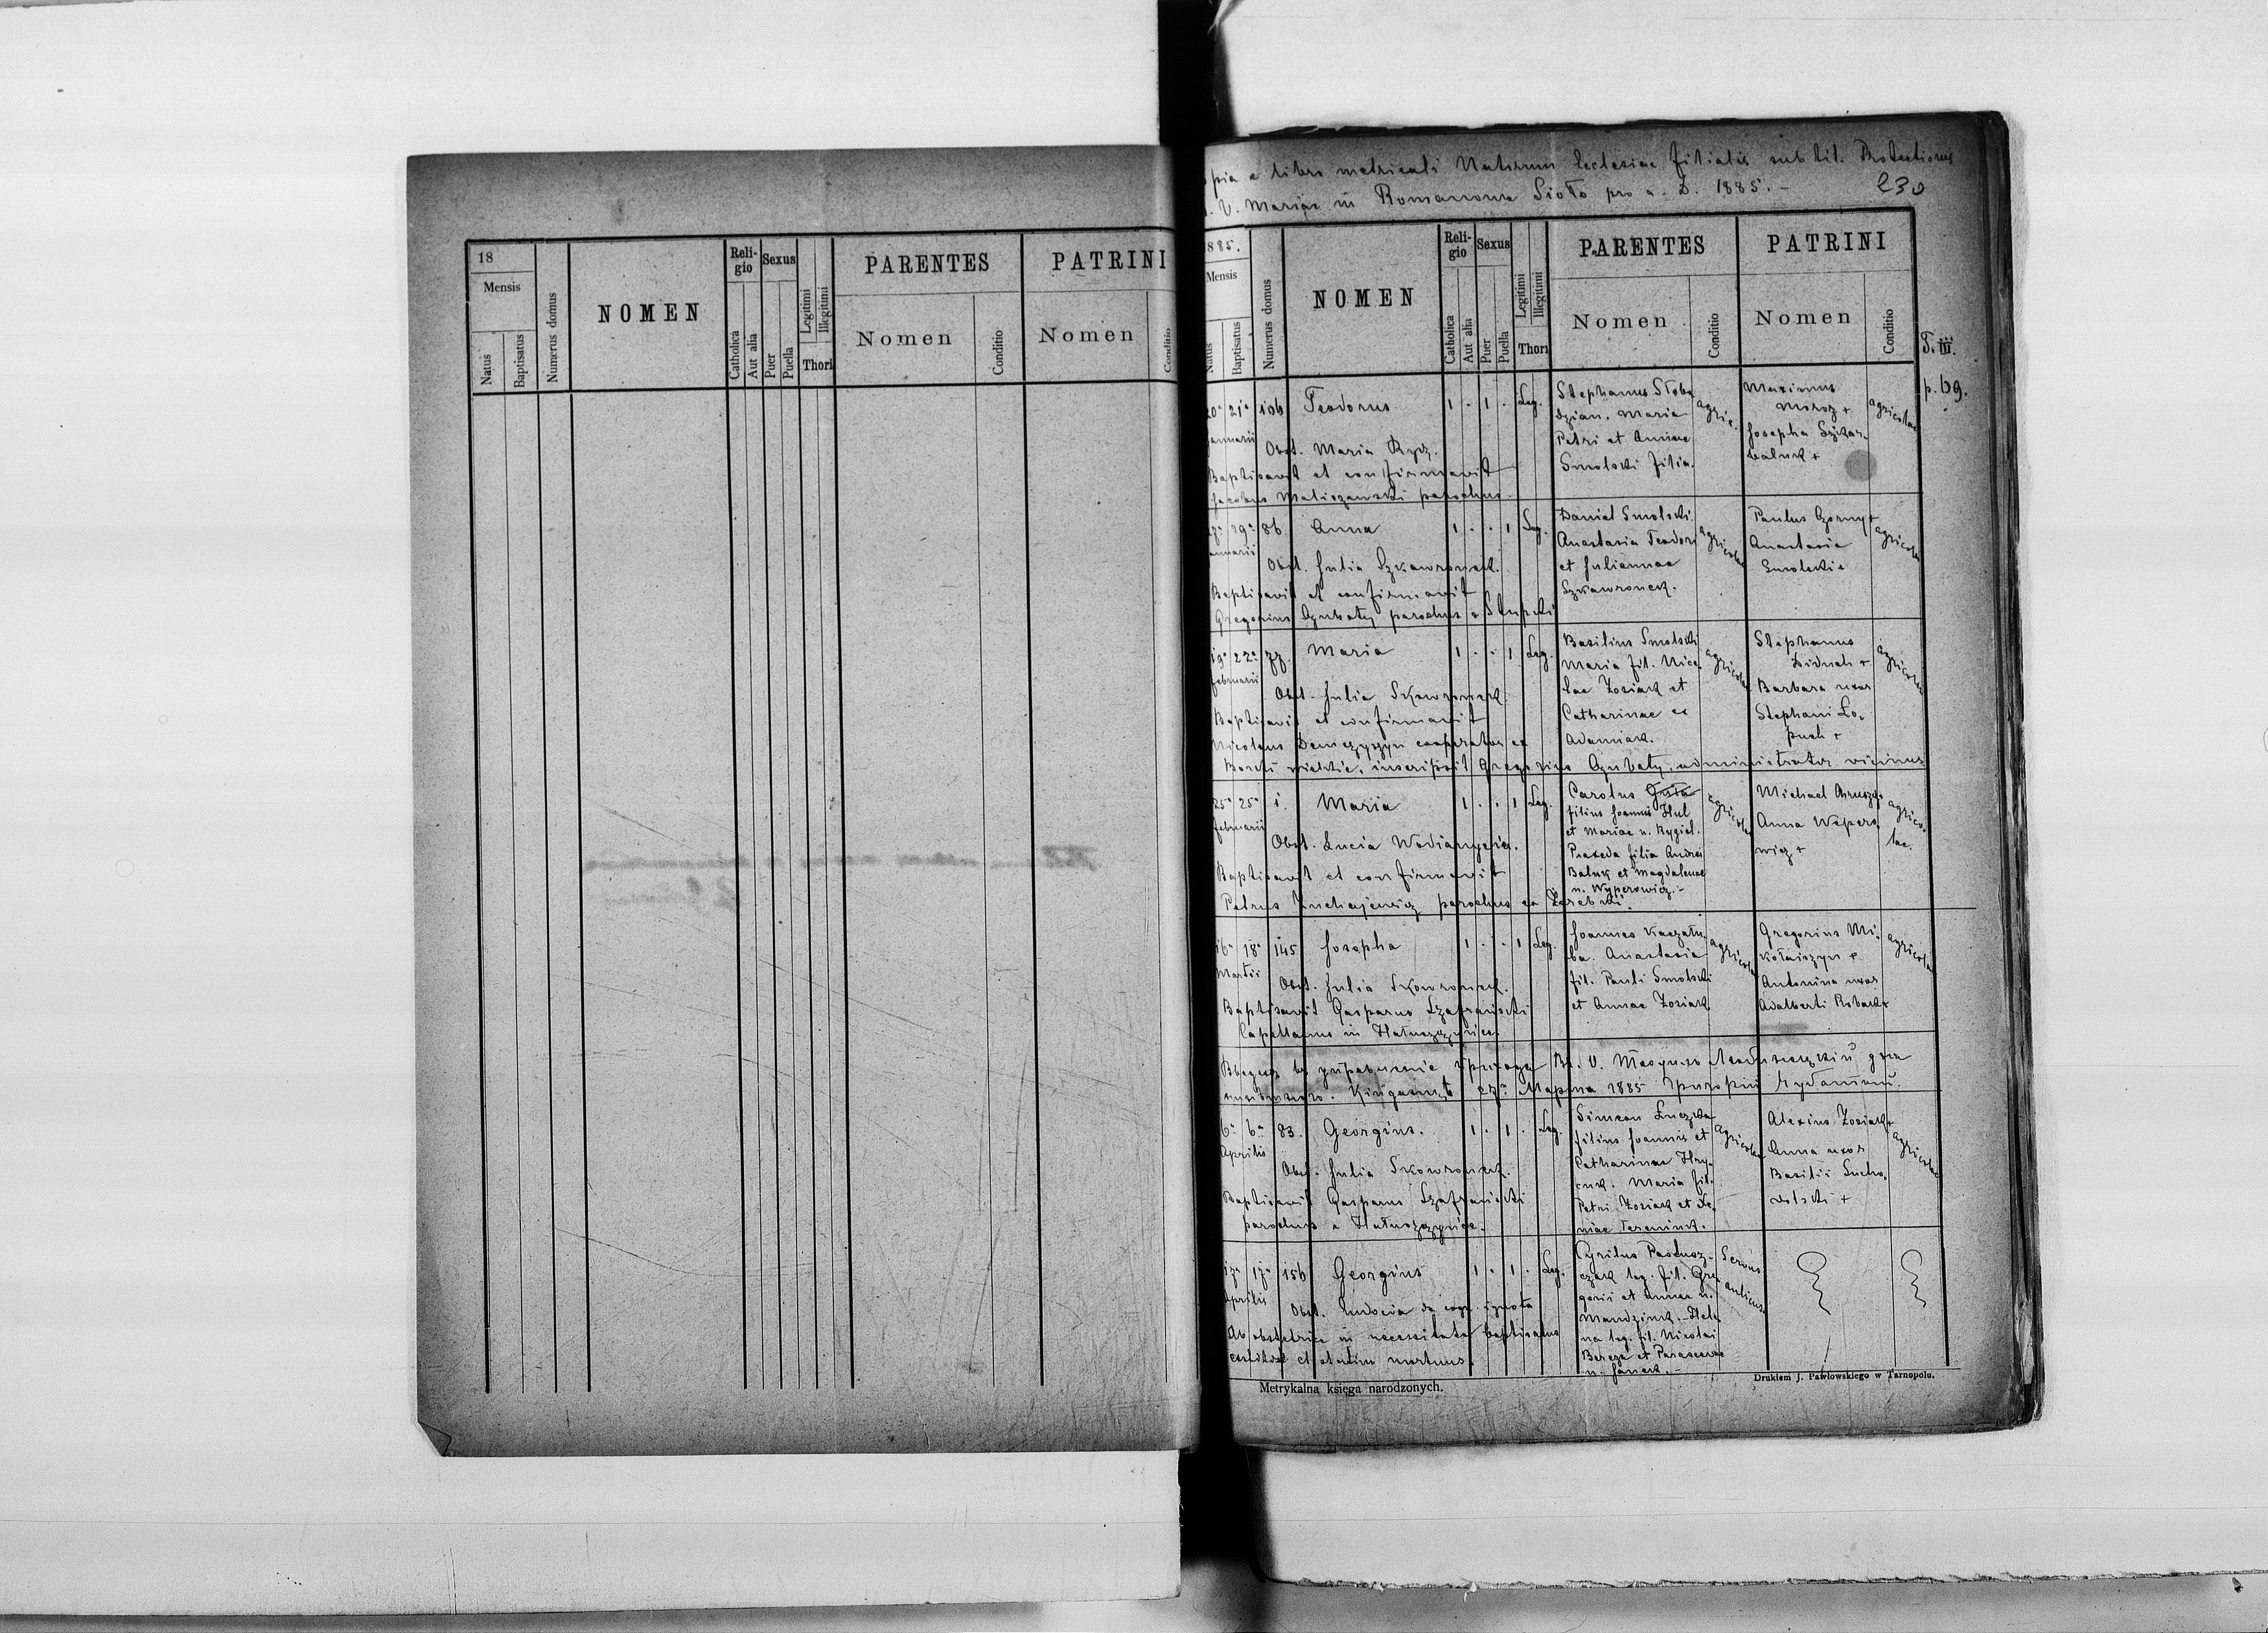 18
Mensis
Natus
Baptisatus
Numerus domus
NOMEN
Religio
Catholica
Aut alia
Sexus
Puer
Puella
Legitimi
Illegitimi
Thori
PARENTES
Nomen
Conditio
PATRINI
Nomen
Conditio
pia e libro metricali Natorum Ecclesiae filialis sub tit. Protectionis
V. Mariae in Romanowe Sioło pro a. D. 1885.-
230
885.
Mensis
Natus
Baptisatus
Numerus domus
NOMEN
Religio
Catholica
Aut alia
Sexus
Puer
Puella
Legitimi
Illegitimi
Thori
PARENTES
Nomen
Conditio
PATRINI
Nomen
Conditio
T. III.
p. 69.
20a 21a 106 Teodorus 1 . 1 . Leg.
Januarii
Obst. Maria Rydz.
Baptisavit et confirmavit
Jacobus Maliszewski parochus.
Stephanus Słobo
dzian. Maria
Petri et Annae
Smolski filia.
agric.
Maximus
Moroz +
Josepha
agricolae
29a 86 Anna 1 . . 1 Leg.
Obst. Julia Szkawronek.
Baptisavit et confirmavit
Gregorius Czubaty parochus a Stupki
Daniel Smolski
Anastasia Teodori
et Juliannae
Szkawronek.
agricolae
Paulus Czorny +
Anastasia
Smolski +
agricolae
19a 22a 77. Maria 1 . . 1 Leg.
Februarii
Obst. Julia Skowronek
Baptisavit et confirmavit
Nicolaus Demczyszyn cooperator ex
Borki wielkie, inscripsit Gregorius Czubaty administrator vicinus
Basilius Smolski
Maria fil. Nico
lae Zosiak et
Catharinae ex
Adamiak.
agricolae
Stephanus
Diduch +
Barbara uxor
Stephani Ło-
puch +
agricolae
25a 25a 1. Maria 1 . . 1 Leg.
Februarii
Obst. Lucia
Baptisavit et confirmavit
Petrus parochus ex
Carolus
filius Joannis Hul
et Mariae n. Kygiel.
Praxeda filia Andrei
Baluk et Magdalenae
n. Wyperowicz.-
agricolae
Michael
Anna Wepero
wicz +
agrico-
lae.
16a 18a 145 Josepha 1 . . 1 Leg.
Martii
Obst. Julia Skowronek.
Baptisavit Gasparus Szafrański
Capellanus in Hałuszczyńce.
Joannes Kaczału
ba. Anastasia
fil. Pauli Smolski
et Annae Zosiak
agricolae
Gregorius Mi-
kołaiszyn +
Antonina uxor
Adalberti Robak +
agricolae
27. Марта 1885 Григорій Чубатый.
6a 6a 83. Georgius. 1 . 1 . Leg.
Aprilis
Obst. Julia Skowronek.
Baptisavit Gasparus Szafrański
parochus a Hałuszczyńce.
Simeon Luczka
filius Joannis et
Catharinae Hry-
cuk. Maria fil.
Petri Zosiak et Xe-
niae Tereniuk.
agricolae
Alexius Zosiak +
Anna uxor
Basilii Sucho-
dolski +
agricolae
17a 17a 156 Georgius 1 . 1 . Leg.
Aprilis
Obst. Eudocia de cogn. ignota
Ab obstetrice in necessitate baptisatus
et statim mortuus.
Cyrilus Pastusz-
czak leg. fil. Gre
gorii et Annae n.
Mandziuk.- Hele
na leg. fil. Nicolai
Bereza et Parascevae
n. Janek.-
Servus
aulicus
Metrykalna księga narodzonych.
Drukiem J. Pawłowskiego w Tarnopolu.